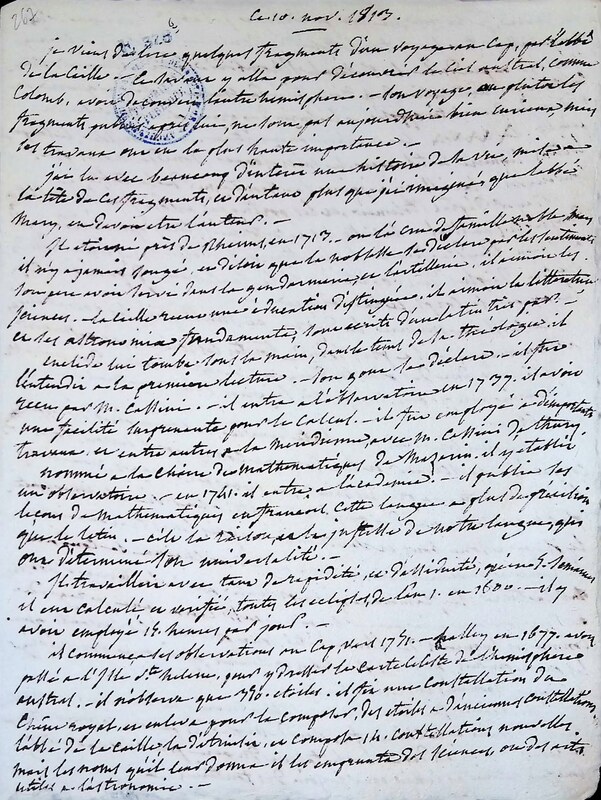 262
Ce 10. nov. 1813.
je viens de lire quelques fragments d'un voyage au Cap, par l'abbé
de la Caille. — Ce savant y alla pour découvrir le Ciel austral, comme
Colomb, avoit découvert l'autre hémisphere. — Son voyage, ou plutot les
fragments publiés après lui, ne sont pas aujourd'hui bien curieux, mais
ses travaux ont eu la plus haute importance. —
j'ai lu avec beaucoup d'intérêt une histoire de sa vie, mise à
la tête de ces fragments, et d'autant plus que j'ai imaginé que l'abbé
Mary, en devoit etre l'auteur. —
Il étoit né près de Rheims, en 1713. — on l'a cru de famille noble, mais
il n'y a jamais songé, en disant que la noblesse se déclare par les sentiments
son pere avoit servi dans la gendarmerie, et l'artillerie, il aimoit les
sciences. — La Caille reçut une éducation distinguée, il aimoit la littérature
et ses astronomiæ fundamenta, sont écrits d'un latin très pur. —
euclide lui tomba sous la main, dans le tems de sa théologie, il
l'entendit a la premiere lecture. — Son gout se déclara. — il fut
reçu par M. Cassini. — il entra a l'observatoire en 1737. il avoit
une facilité surprenante pour le calcul. — il fut employé a d'importants
travaux, et entre autres a la Méridienne, avec M. Cassini de Thury.
nommé a la chaire de mathématiques de Mazarin. il y établit
un observatoire. — en 1741. il entra a l'académie. — il publia ses
leçons de mathématiques en françois, cette langue a plus de précision
que le latin. — c'est la raison, et la justesse de notre langue, qui
ont déterminé son universalité. —
Il travailloit avec tant de rapidité, et d'assiduité, qu'en 5. semaines
il eut calculé et vérifié, toutes les eclipses, de l'an 1. en 1800. — il y
avoit employé 15. heures par jour. —
il commença des observations au Cap vers 1751. — halley en 1677. avoit
passé a l'Isle Ste helene, pour y dresser la carte céleste de l'hemisphere
austral. — il n'observa que 350. etoiles. il fit une Constellation du
Chêne royal, et enleva pour le composer, des etoiles a d'anciennes constellations
l'abbé de la Caille l'a détruite, et composa 14. constellations nouvelles
mais les noms qu'il leur donna il les emprunta des sciences, ou des arts
utiles a l'astronomie. —